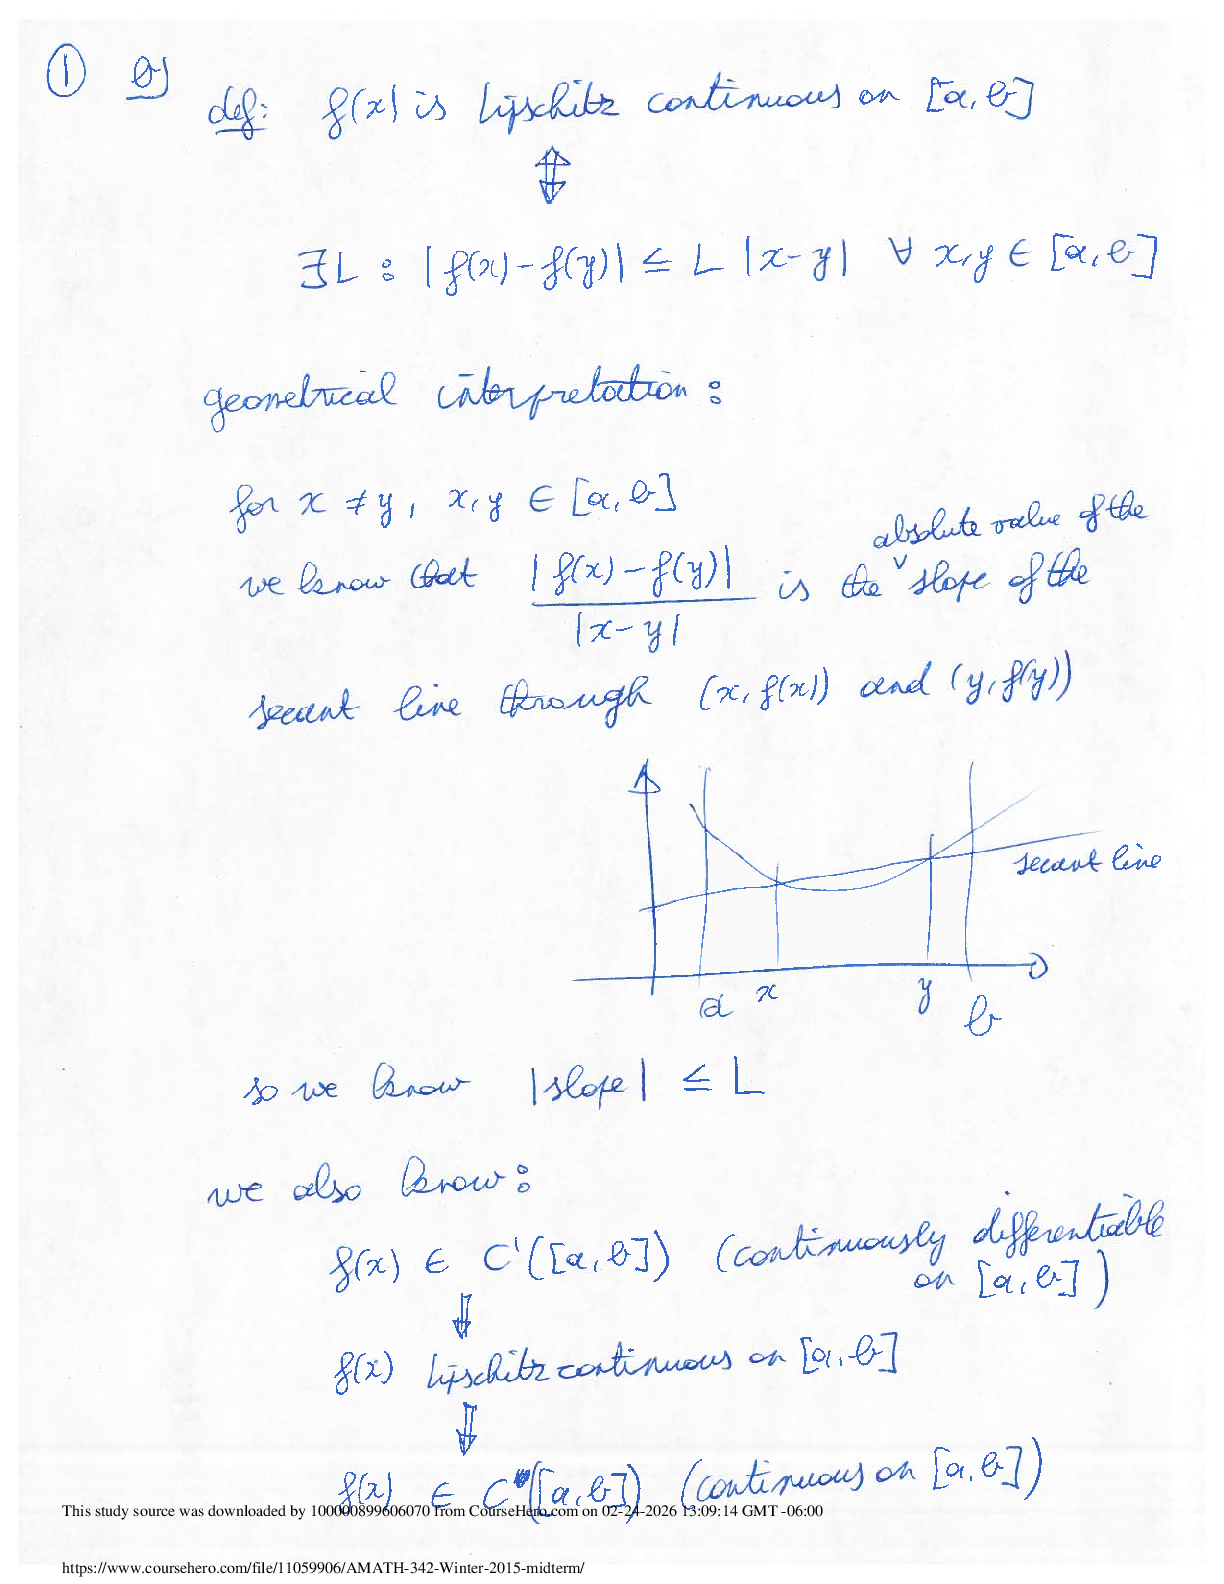 ① b)
def: f(x) is Lipschitz continuous on [a, b]
⇕
∃L : |f(x) - f(y)| ≤ L |x-y| ∀ x, y ∈ [a, b]
geometrical interpretation :
for x ≠ y, x, y ∈ [a, b]
absolute value of the
we know that |f(x) - f(y)| / |x-y| is the ˅ slope of the
secant line through (x, f(x)) and (y, f(y))
secant line
a x y b
so we know |slope| ≤ L
we also know :
f(x) ∈ C¹([a, b]) (continuously differentiable
on [a, b])
⇓
f(x) Lipschitz continuous on [a, b]
⇓
f(x) ∈ C([a, b]) (continuous on [a, b])
This study source was downloaded by 100000899606070 from CourseHero.com on 02-24-2026 13:09:14 GMT -06:00
https://www.coursehero.com/file/11059906/AMATH-342-Winter-2015-midterm/